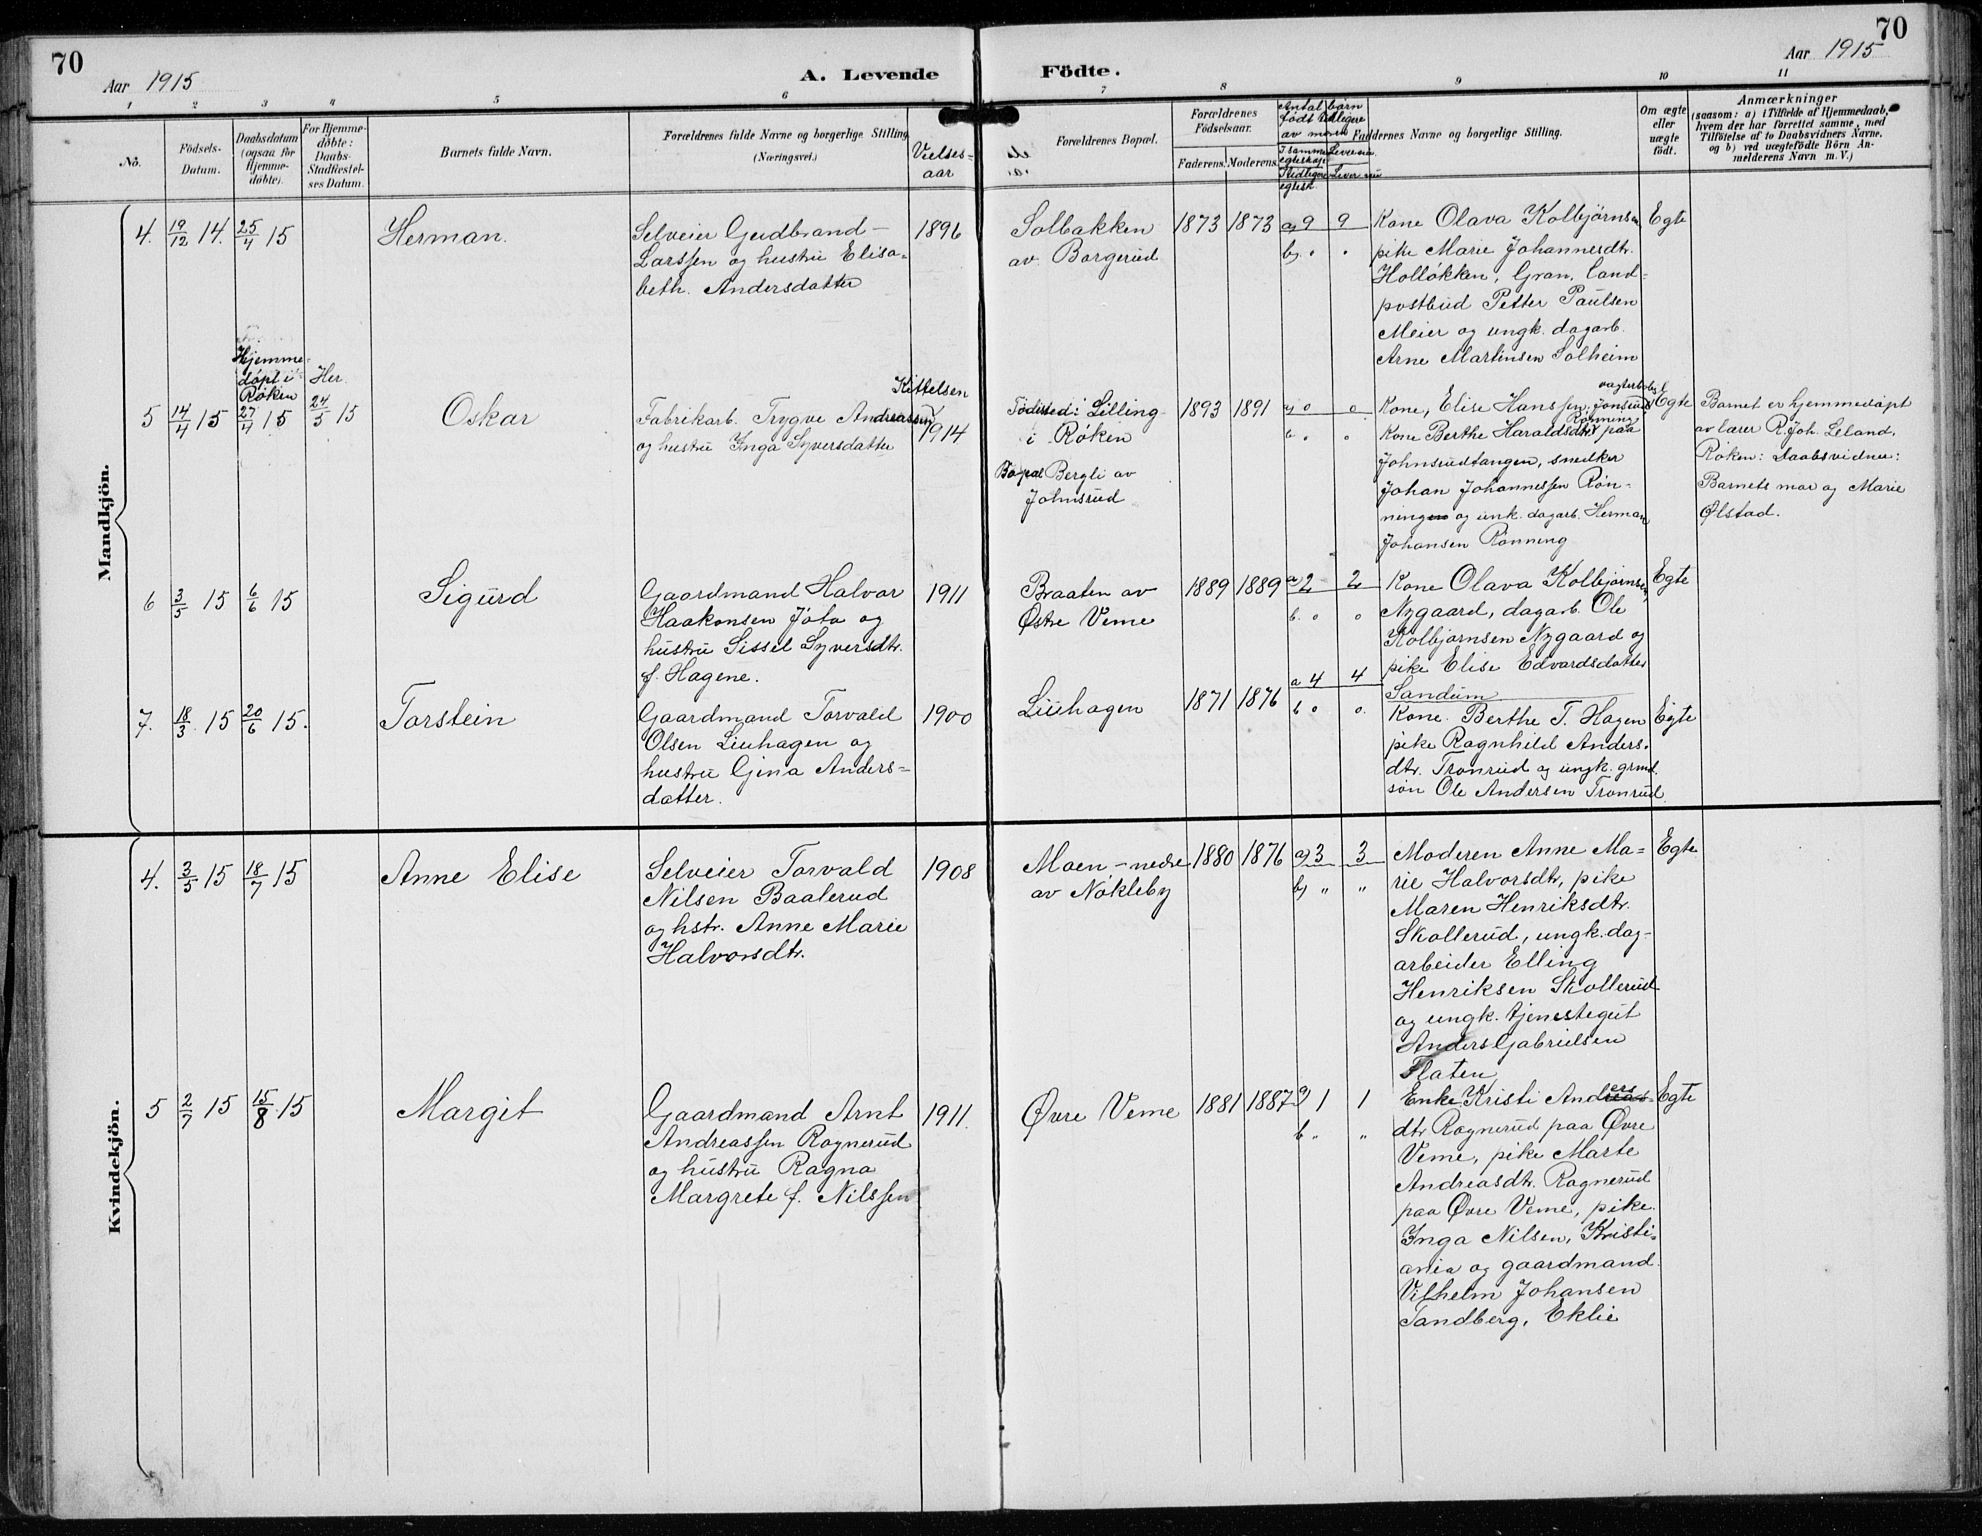 70
Aar 1915
A. Levende
Födte.
70
Aar 1915
1 2 3 4 5 6 7 8 9 10 11
No.
Födsels-
Datum.
Daabsdatum
(ogsaa for
Hjemme-
döbte).
For Hjemme-
döbte:
Daabs-
Stadfæstel-
ses Datum.
Barnets fulde Navn.
Forældrenes fulde Navne og borgerlige Stilling
(Næringsvei.)
Vielses-
aar
Forældrenes Bopæl.
Forældrenes
Födselsaar.
Faderens.
Moderens.
Antal börn
født tidligere
av moren
I samme
egteskap
Tidligere
egtesk
Levende
Lever nu
Faddernes Navne og borgerlige Stilling.
Om ægte
eller
uægte
födt.
Anmærkninger
(saasom: a) i Tilfælde af Hjemmedaab,
hvem der har forrettet samme, med
Tilföielse af to Daabsvidners Navne.
og b) ved uægtefödte Börn An-
melderens Navn m. V.)
Mandkjön.
4. 19/12 14. 25/4 15
Herman.
Selveier Gudbrand
Larssen og hustru Elisa-
beth Andersdatter
1896
Solbakken
av Borgerud
1873 1873
a) 9 9
b) . .
Kone Olava Kolbjørnsen
pike Marie Johannesdtr.
Holløkken, Gran, Land-
postbud Petter Paulsen
Meier og ungk. dagarb.
Arne Martinsen Solheim
Egte
Hjemme-
døpt i
Røken
5 14/4 15 27/4 15
Her.
24/5 15
Oskar
Kittelsen
Fabrikarb. Trygve Andreassen
og hustru Inga Syversdatter
1914
Fødested: Lilling
i Røken
Bopæl Bergli av
Johnsrud
1893 1891
a) 0 0
b. . .
Kone, Elise Hanssen, Jonsrud
Kone Berthe Haraldsdtr paa
Rønning
Johnsrudtangen, snedker
Johan Johannessen Røn-
ningen og unk. dagarb. Herman
Johansen Rønning
Egte
Barnet er hjemmedøpt
av lærer R. Joh. Leland,
Røken: Daabsvidner:
Barnets mor og Marie
Ølstad.
6 3/5 15 6/6 15
Sigurd
Gaardmand Halvor
Haakonsen Jota og
hustru Sissel Syversdtr.
f. Hagene.
1911
Braaten av
Østre Veme
1889 1889
a 2 2
b. 0 0
Kone Olava Kolbjørnsen,
Nygaard, dagarb. Ole
Kolbjørnsen Nygaard og
pike Elise Edvardsdatter
Sandum
Egte
7. 18/3 15 20/6 15.
Torstein
Gaardmand Torvald
Olsen Liuhagen og
hustru Gina Anders-
datter.
1900
Liuhagen
1871 1876
a 4 4
b 0 0.
Kone Berthe T. Hagen
pike Ragnhild Anders-
dtr. Tronrud og ungk. grmd.
søn Ole Andersen Tronrud
Egte
Kvindekjön.
4. 3/5 15 18/7 15
Anne Elise
Selveier Torvald
Nilsen Baalerud
og hstr. Anne Marie
Halvorsdtr.
1908
Moen - nedre
av Nøkleby
1880 1876
a) 3 3
b) " "
Moderen Anne Ma-
rie Halvorsdtr, pike
Maren Henriksdtr.
Skollerud, ungk. dag-
arbeider Elling
Henriksen Skollerud
og ungk. tjenestegut
Anders Gabrielsen
Flaten
Egte
5 2/7 15 15/8 15
Margit
Gaardmand Arnt
Andreassen Rognerud
og hustru Ragna
Margrete f. Nilssen
1911.
Øvre Veme
1881 1887
a 1 1
b " "
Enke Kristi Anders-
dtr Rognerud paa Øvre
Veme, pike Marte
Andreasdtr. Rognerud
paa Øvre Veme, pike
Inga Nilsen, Kristi-
ania og gaardmand
Vilhelm Johansen
Tandberg, Eklie
Egte